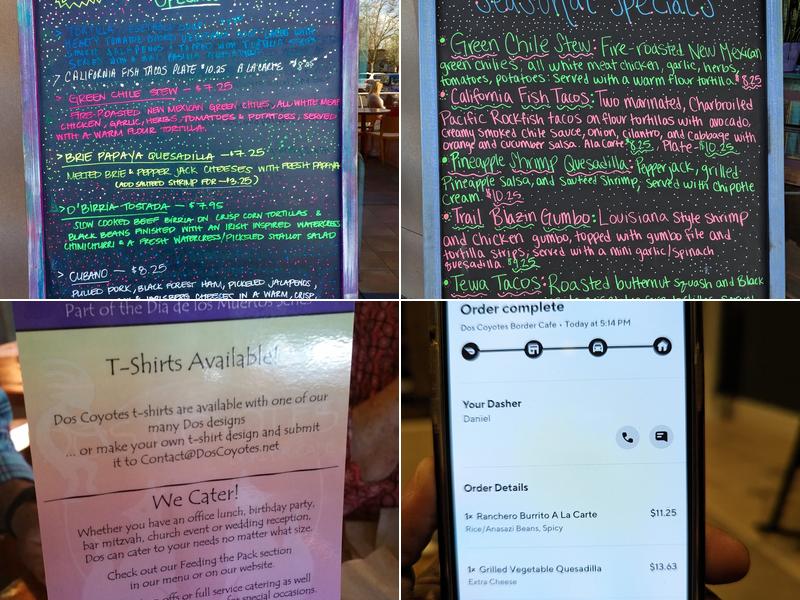 SPECIALS
> CALIFORNIA FISH TACOS PLATE $10.25 A LA CARTE $8.25
> GREEN CHILE STEW — $7.25
FIRE-ROASTED NEW MEXICAN GREEN CHILES, ALL WHITE MEAT
CHICKEN, GARLIC, HERBS, TOMATOES & POTATOES, SERVED
WITH A WARM FLOUR TORTILLA.
> BRIE PAPAYA QUESADILLA — $7.25
MELTED BRIE & PEPPER JACK CHEESES WITH FRESH PAPAYA
(ADD SAUTÉED SHRIMP FOR $3.25)
> O'BIRRIA TOSTADA — $7.95
SLOW COOKED BEEF BIRRIA ON CRISP CORN TORTILLAS &
BLACK BEANS FINISHED WITH AN IRISH INSPIRED WATERCRESS
CHIMICHURRI & A FRESH WATERCRESS/PICKLED SHALLOT SALAD
> CUBANO — $8.25
PULLED PORK, BLACK FOREST HAM, PICKLED JALAPENOS,
CHEESES IN A WARM, CRISP,
Seasonal Specials
• Green Chile Stew: Fire-roasted New Mexican
green chiles, all white meat chicken, garlic, herbs,
tomatoes, potatoes: Served with a warm flour tortilla. $8.25
• California Fish Tacos: Two marinated, Charbroiled
Pacific Rockfish tacos on flour tortillas with avocado,
creamy smoked chile sauce, onion, cilantro, and cabbage with
orange and cucumber salsa. Ala Carte $8.25, Plate - $10.25
• Pineapple Shrimp Quesadilla: Pepperjack, grilled
Pineapple salsa, and sautéed Shrimp, served with chipotle
cream. $10.25
• Trail Blazin Gumbo: Louisiana style shrimp
and chicken gumbo, topped with gumbo file and
tortilla strips; served with a mini garlic/spinach
quesadilla. $9.25
• Tewa Tacos: Roasted butternut squash and Black
Part of the Dia de los Muertos Series
T-Shirts Available!
Dos Coyotes t-shirts are available with one of our
many Dos designs
... or make your own t-shirt design and submit
it to Contact@DosCoyotes.net
We Cater!
Whether you have an office lunch, birthday party,
bar mitzvah, church event or wedding reception,
Dos can cater to your needs no matter what size.
Check out our Feeding the Pack section
in our menu or on our website.
offs or full service catering as well
for special occasions.
Order complete
Dos Coyotes Border Cafe • Today at 5:14 PM
Your Dasher
Daniel
Order Details
1× Ranchero Burrito A La Carte $11.25
Rice/Anasazi Beans, Spicy
1× Grilled Vegetable Quesadilla $13.63
Extra Cheese